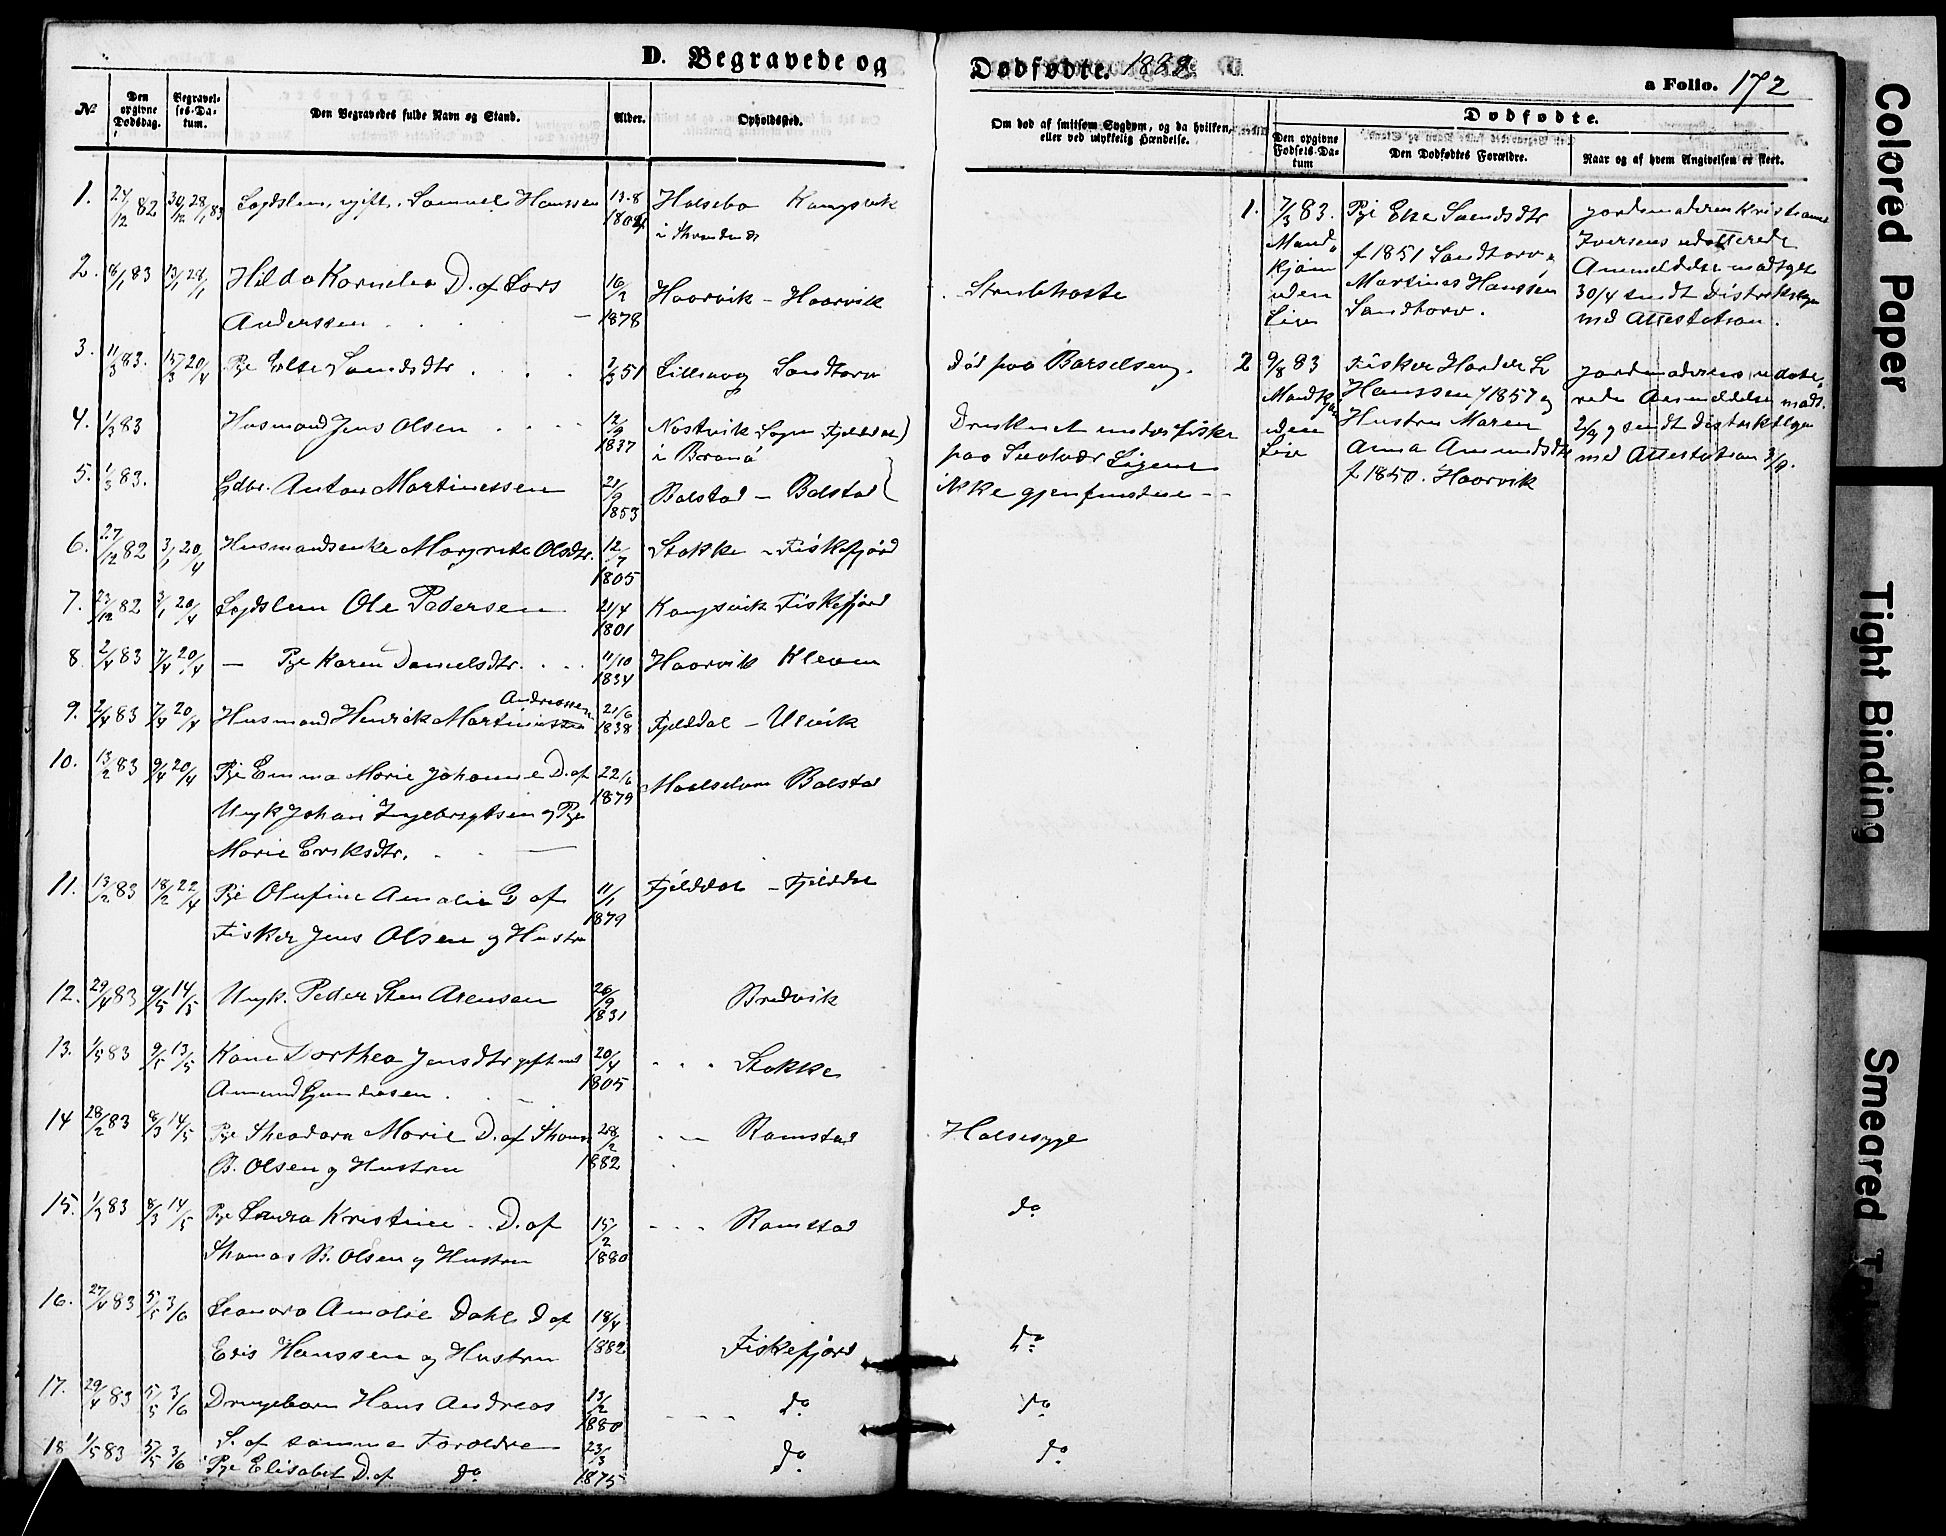 D. Begravede og
Dødfødte. 1883.
a Folio. 172
No
Den opgivne Dødsdag.
Begravelses-Datum.
Den Begravedes fulde Navn og Stand.
Alder.
Opholdssted.
Om død af smitsom Sygdom, og da hvilken,
eller ved ulykkelig Hændelse.
Dødfødte.
Den opgivne Fødsels-Datum
Den Dødfødtes Forældre.
Naar og af hvem Angivelsen er skeet.
1. 24/12 82 30/12 28/1 83 Lægdslem, gift, Samuel Hanssen 13.8 1804 Halsebø Kongsvik
i Strand
2. 8/1 83 13/1 28/1 Hilda Kornelia D. af Lars 16/2 1878 Haarvik - Haarvik Strubehoste
Anderssen
3. 11/3 83. 15/3 20/4 Pge Else Svendsdtr 2/3 51 Sandtorv Død paa Barselseng.
4. 1/3 83 Husmand Jens Olsen 12/9 1837 Nostvik Sogn Fjelddal Druknet under Fiske
i Brønø paa Svolvær Ligene
5. 1/3 83. Gdbr. Anton Martinessen 21/9 1853 Balstad - Balstad ikke gjenfundne
6. 27/12 82 3/1 20/4 Husmandsenke Margrete Olsdtr. 12/7 1805 Stokke - Fiskefjord
7. 23/12 82 3/1 20/4 Lægdslem Ole Pedersen 21/4 1801 Kongsvik Fiskefjord
8. 2/4 83 7/4 20/4 - Pge Karen Danielsdtr. 11/10 1834 Haarvik Kleven
9. 2/4 83 7/4 20/4 Husmand Henrik Martinussen Andreassen 21/6 1838 Fjelddal - Ulvik
10. 13/2 83 9/4 20/4 Pge Emma Marie Johanne D. af 22/6 1879 Balstad
Ungk Johan Ingebrigtsen og Pge
Marie Eriksdtr.
11. 13/2 83 18/2 22/4 Pge Olufine Amalie D af 11/1 1879 Fjelddal - Fjelddal
Fisker Jens Olsen og Hustru
12. 29/4 83 9/5 14/5 Ungk. Peder Sten Arensen 26/9 1831 Bredvik
13. 1/5 83 9/5 13/5 Kone Dorthea Jensdtr gift med 20/4 1805 Stokke
Amund
14 28/2 83 8/3 14/5 Pge Theodora Marie D. af Thomas 28/2 1882 Ramstad Halsesyge
B. Olsen og Hustru
15. 1/3 83 8/3 14/5 Pge Laura Kristine D. af 15/2 1880 Ramstad do
Thomas B. Olsen og Hustru
16. 27/4 83 5/5 3/6 Leonora Amalie Dahl D af 18/4 1882 Fiskefjord do
Edis Hanssen og Hustru
17. 29/4 83 5/5 3/6 Drengebarn Hans Andreas 13/2 1880 do do
S. af samme Forældre
18 1/5 83 5/5 3/6 Pge Elisabet D. af do 23/3 1875 do do
1. 7/3 83.
Mandkjøn
uden
Liv
Pge Else Svendsdtr
f 1851 Sandtorv,
Martines Hanssen
Sandtorv.
Jordmoderen Kristiane
Iversens udaterede
Anmeldelse modtget
30/4 sendt Distriktslægen
med Attestation.
2 9/8 83
Mandkjøn
uden
Liv
Fisker Harder L
Hanssen f 1857 og
Hustru Maren
Anna Amundsdtr
f 1850. Haarvik
Jordmoderens udate-
rede Anmeldelse modt.
2/9 og sendt Distriktslægen
med Attestation 3/9.
Colored Paper
Tight Binding
Smeared